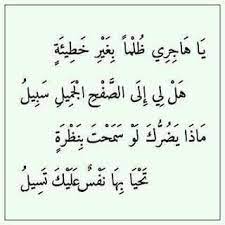 يَا هَاجِرِي ظُلْماً بِغَيْرِ خَطِيئَةٍ
هَلْ لِي إِلَى الصَّفْحِ الْجَمِيلِ سَبِيلُ
مَاذَا يَضُرُّكَ لَوْ سَمَحْتَ بِنَظْرَةٍ
تَحْيَا بِهَا نَفْسٌ عَلَيْكَ تَسِيلُ